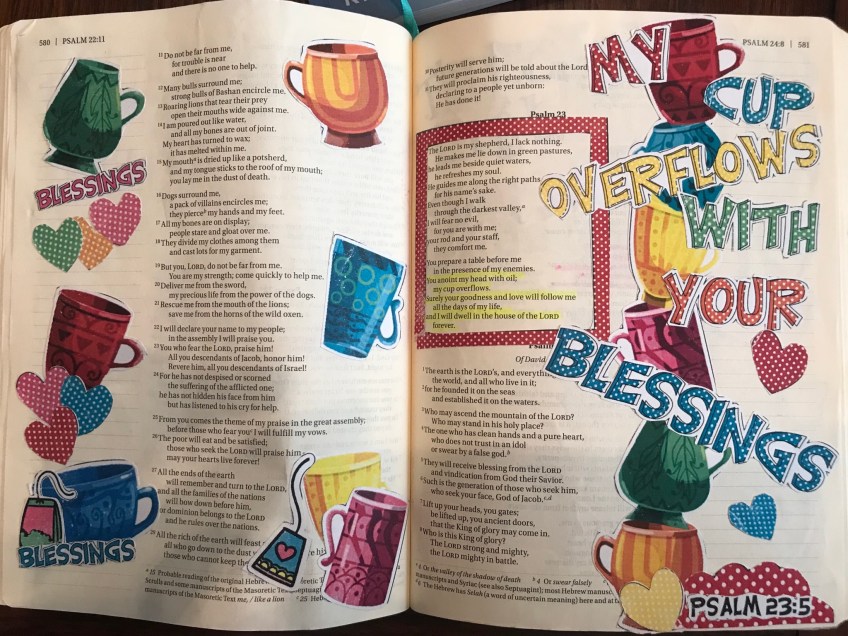 580 | PSALM 22:11
11 Do not be far from me,
for trouble is near
and there is no one to help.
12 Many bulls surround me;
strong bulls of Bashan encircle me.
13 Roaring lions that tear their prey
open their mouths wide against me.
14 I am poured out like water,
and all my bones are out of joint.
My heart has turned to wax;
it has melted within me.
15 My mouth a is dried up like a potsherd,
and my tongue sticks to the roof of my mouth;
you lay me in the dust of death.
16 Dogs surround me,
a pack of villains encircles me;
they pierce b my hands and my feet.
17 All my bones are on display;
people stare and gloat over me.
18 They divide my clothes among them
and cast lots for my garment.
19 But you, LORD, do not be far from me.
You are my strength; come quickly to help me.
20 Deliver me from the sword,
my precious life from the power of the dogs.
21 Rescue me from the mouth of the lions;
save me from the horns of the wild oxen.
22 I will declare your name to my people;
in the assembly I will praise you.
23 You who fear the LORD, praise him!
All you descendants of Jacob, honor him!
Revere him, all you descendants of Israel!
24 For he has not despised or scorned
the suffering of the afflicted one;
he has not hidden his face from him
but has listened to his cry for help.
25 From you comes the theme of my praise in the great assembly;
before those who fear you c I will fulfill my vows.
26 The poor will eat and be satisfied;
those who seek the LORD will praise him
may your hearts live forever!
27 All the ends of the earth
will remember and turn to the LORD,
and all the families of the nations
will bow down before him,
for dominion belongs to the LORD
and he rules over the nations.
29 All the rich of the earth will feast
all who go down to the dust
those who cannot keep the
a 15 Probable reading of the original Hebrew
Scrolls and some manuscripts of the Masoretic
manuscripts of the Masoretic Text me, / like a lion
c 25
BLESSINGS
BLESSINGS
PSALM 24:8 | 581
30 Posterity will serve him;
future generations will be told about the Lord
They will proclaim his righteousness,
declaring to a people yet unborn:
He has done it!
Psalm 23
The LORD is my shepherd, I lack nothing.
He makes me lie down in green pastures,
he leads me beside quiet waters,
he refreshes my soul.
He guides me along the right paths
for his name's sake.
Even though I walk
through the darkest valley, a
I will fear no evil,
for you are with me;
your rod and your staff,
they comfort me.
You prepare a table before me
in the presence of my enemies.
You anoint my head with oil;
my cup overflows.
Surely your goodness and love will follow me
all the days of my life,
and I will dwell in the house of the LORD
forever.
Of David.
1 The earth is the LORD's, and everything
the world, and all who live in it;
2 for he founded it on the seas
and established it on the waters.
3 Who may ascend the mountain of the LORD?
Who may stand in his holy place?
4 The one who has clean hands and a pure heart,
who does not trust in an idol
or swear by a false god. b
5 They will receive blessing from the LORD
and vindication from God their Savior.
6 Such is the generation of those who seek him,
who seek your face, God of Jacob. c,d
7 Lift up your heads, you gates;
be lifted up, you ancient doors,
that the King of glory may come in.
8 Who is this King of glory?
The LORD strong and mighty,
the LORD mighty in battle.
a 4 Or the valley of the shadow of death
b 4 Or swear falsely
manuscripts and Syriac (see also Septuagint); most Hebrew
d 6 The Hebrew has Selah (a word of uncertain meaning) here and at
MY
CUP
OVERFLOWS
WITH
YOUR
BLESSINGS
PSALM 23:5